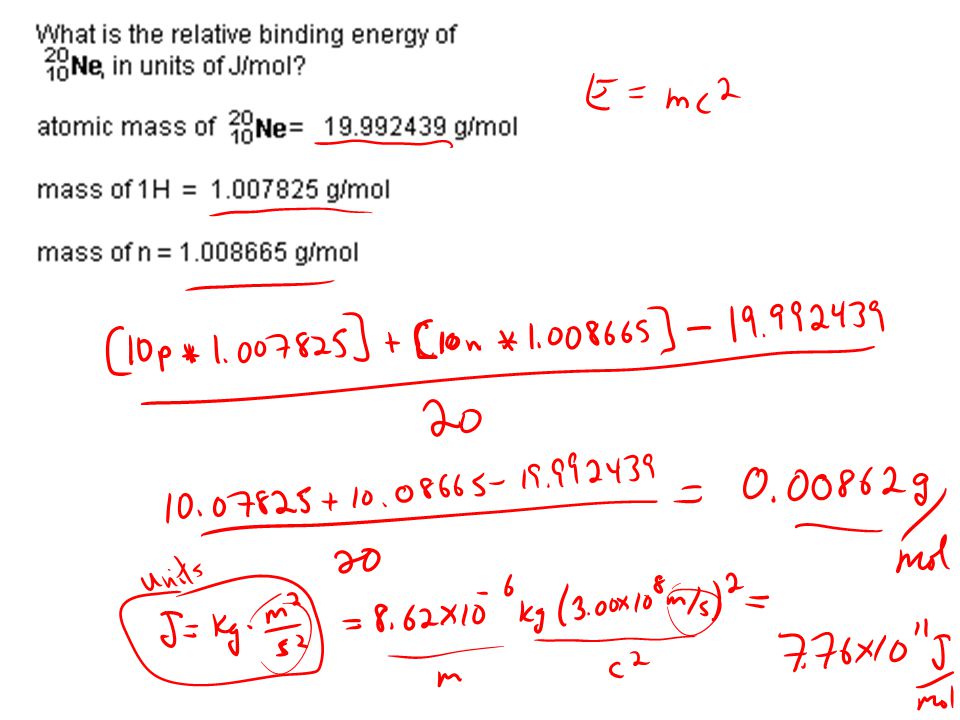 What is the relative binding energy of
20 10 Ne, in units of J/mol?
E = mc2
atomic mass of 20 10 Ne = 19.992439 g/mol
mass of 1H = 1.007825 g/mol
mass of n = 1.008665 g/mol
[10p * 1.007825] + [10n * 1.008665] - 19.992439
20
10.07825 + 10.08665 - 19.992439 = 0.00862 g/mol
20
units
J = kg · m2/s2 = 8.62x10-6 kg (3.00x10 8 m/s)2 = 7.76x10 11 J/mol
m c2